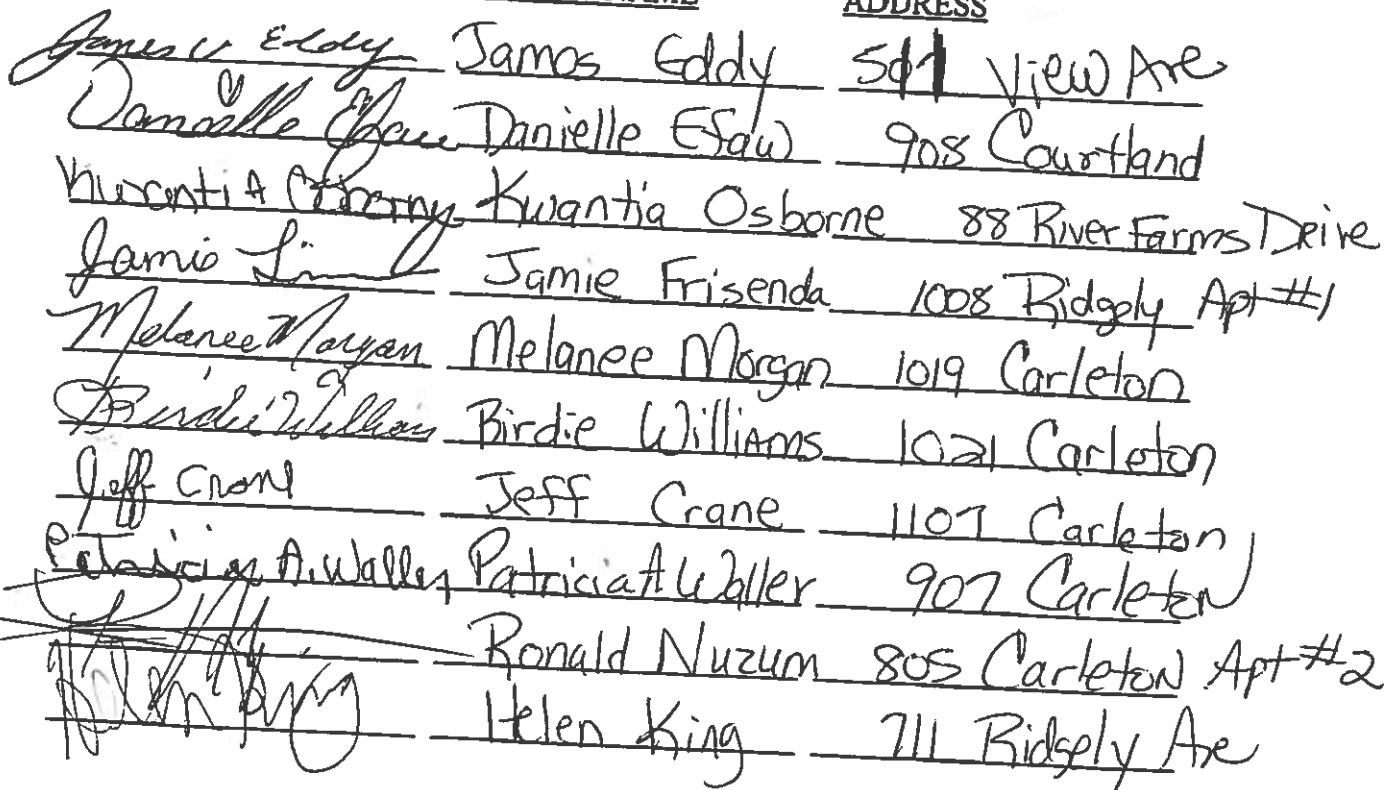 NAME ADDRESS
James V Eddy Jamos Eddy View Are
Danielle Efaw Danielle Efaw 908 Courtland
Kwantia Osborne 88 River Farms Drive
Jamie Jamie Frisenda 1008 Ridgely Apt #1
Melanee Morgan Melanee Morgan 1019 Carleton
Birdie Williams Birdie Williams 1021 Carleton
Jeff Crane Jeff Crane 1107 Carleton
Patricia A. Waller Patricia A Waller 907 Carleton
Ronald Nuzum 805 Carleton Apt #2
Helen King Helen King 711 Ridgely Ave